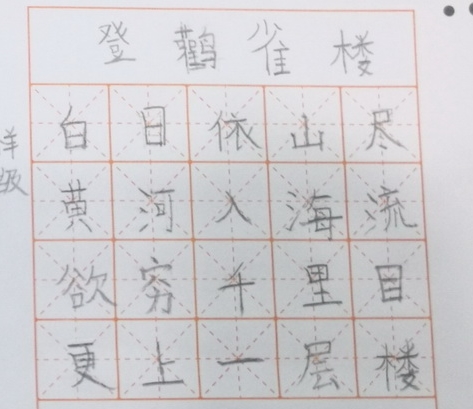 登鸛雀楼
白日依山尽
黄河入海流
欲穷千里目
更上一层楼
级